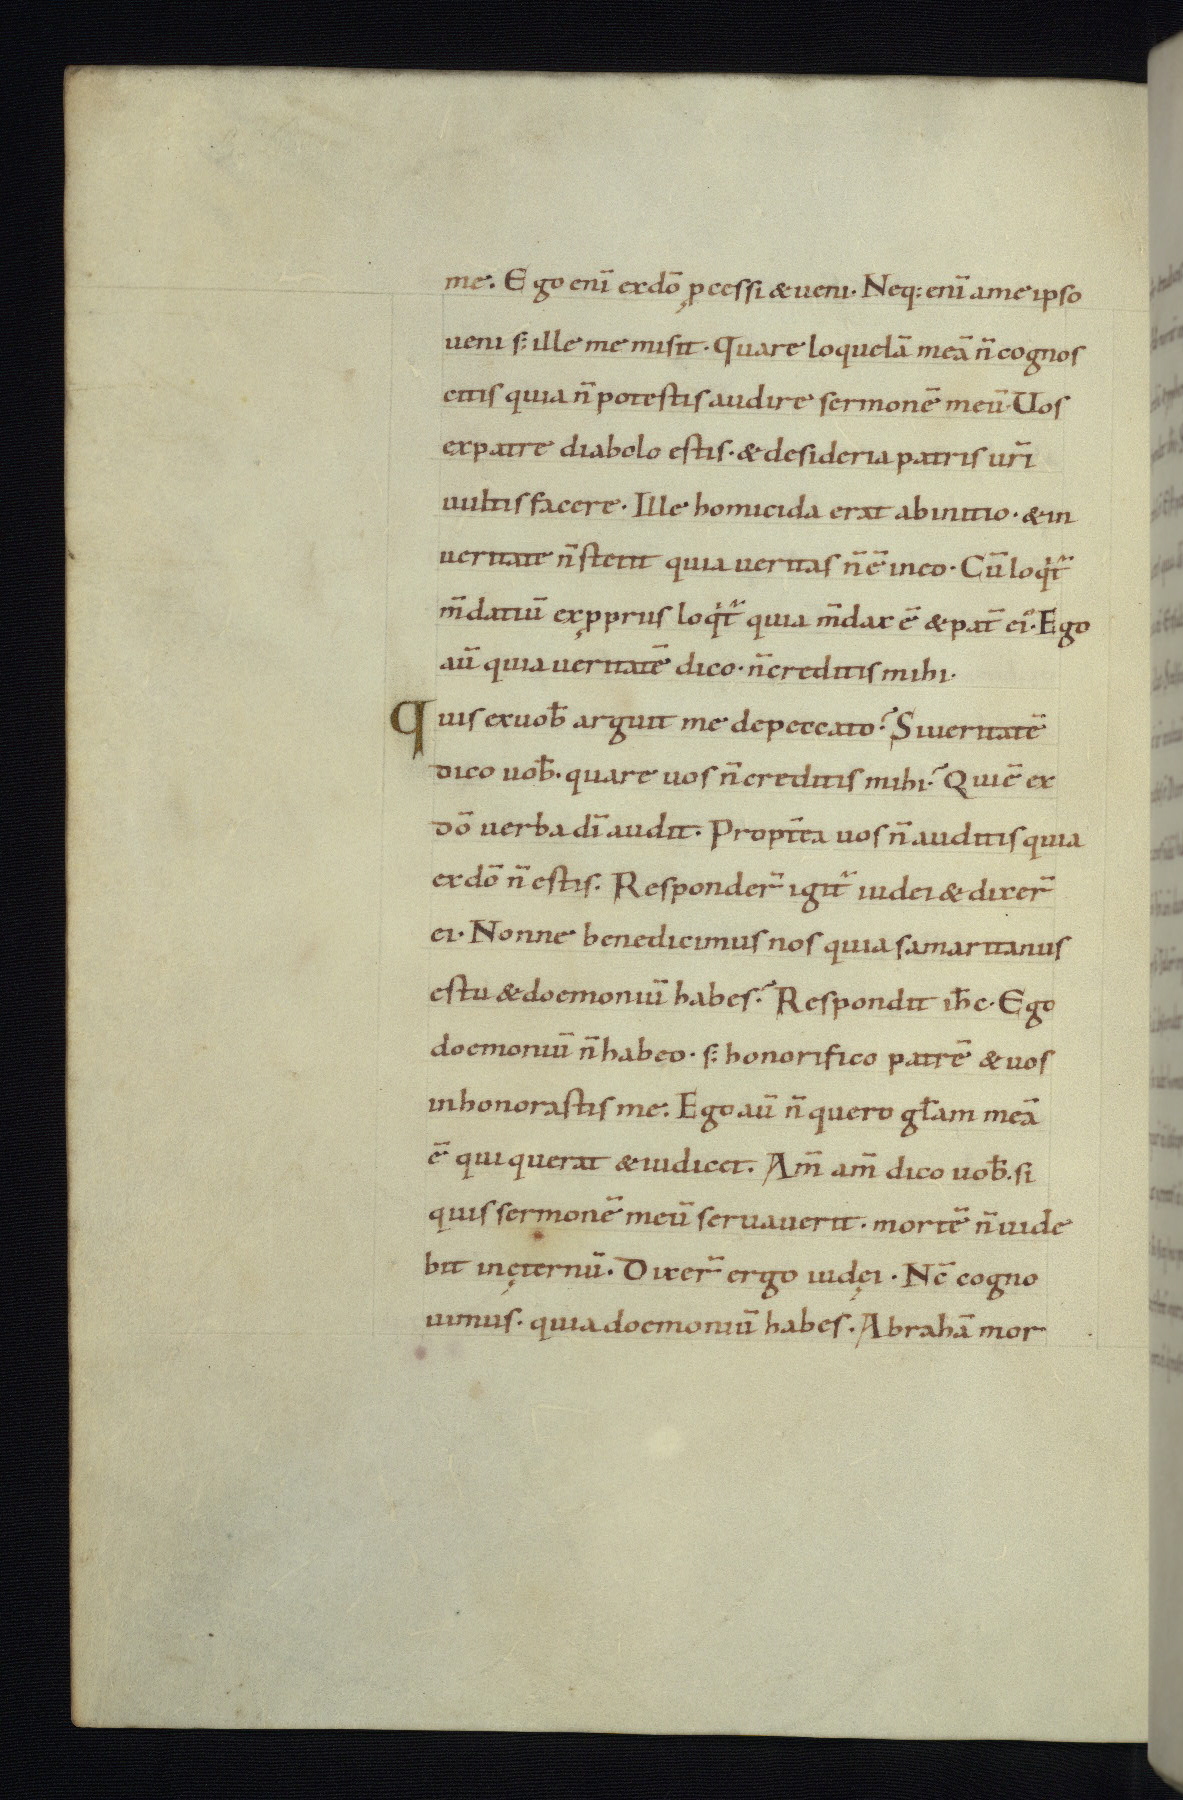 me. Ego enī exdō ꝓcessi & ueni. Neq; enī ame ipso
ueni s; ille me misit. Quare loquelā meā n̄ cognos
citis quia n̄ potestis audire sermonē meū. Uos
expatre diabolo estis. & desideria patris ur̄i
uultis facere. Ille homicida erat abinitio. & in
ueritate n̄ stetit quia ueritas n̄ ē in eo. Cū loqit̃
m̄datiū ex ꝓpriis loqit̃ quia m̄dax ē & pat̄ ei᾽. Ego
aū quia ueritatē dico. n̄ creditis mihi.
Quis exuob̄ arguit me depeccato? Si ueritatē
dico uob̄. quare uos n̄ creditis mihi? Qui ē ex
dō uerba dī audit. Propt̄ea uos n̄ auditis quia
exdō n̄ estis. Responder̄ igit̃ iudei & dixer̄
ei. Nonne benedicimus nos quia samaritanus
es tu & doemoniū habes? Respondit ih̄c. Ego
doemoniū n̄ habeo. s; honorifico patrē & uos
inhonorastis me. Ego aū n̄ quero gl̄am meā
ē qui querat & iudicet. Am̄ am̄ dico uob̄. si
quis sermonē meū seruauerit. mortē n̄ uide
bit in ęternū. Dixer̄ ergo iudęi. Nc̄ cogno
uimus. quia doemoniū habes. Abrahā mor